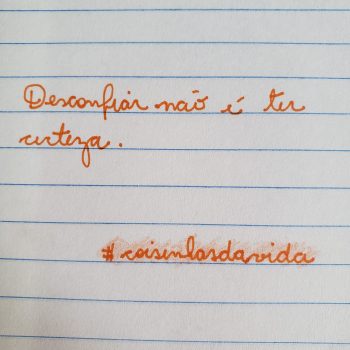 Desconfiar não é ter
certeza.
#coisinhasdavida